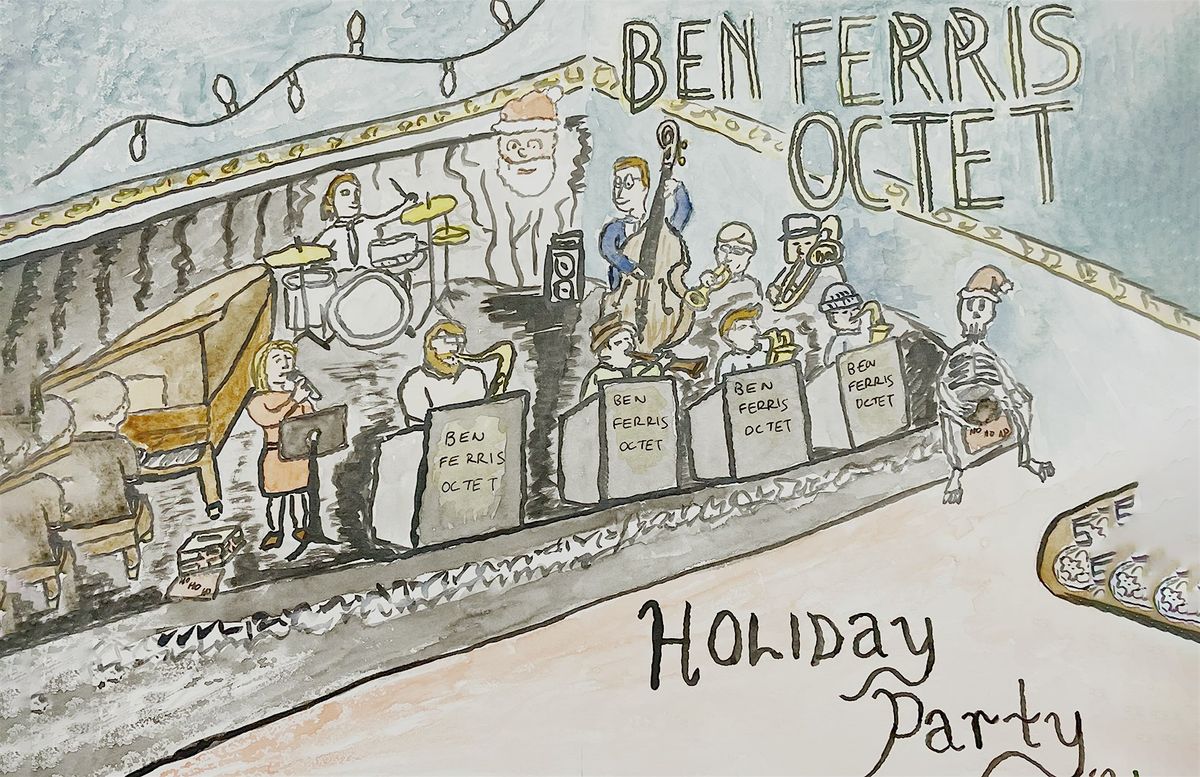 BEN FERRIS
OCTET
BEN
FERRIS
OCTET
BEN
FERRIS
OCTET
BEN
FERRIS
OCTET
BEN
FERRIS
OCTET
HOLIDay
Party